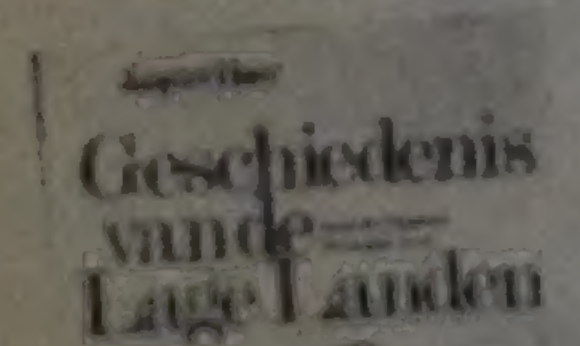 Geschiedenis
van de
Lage Landen